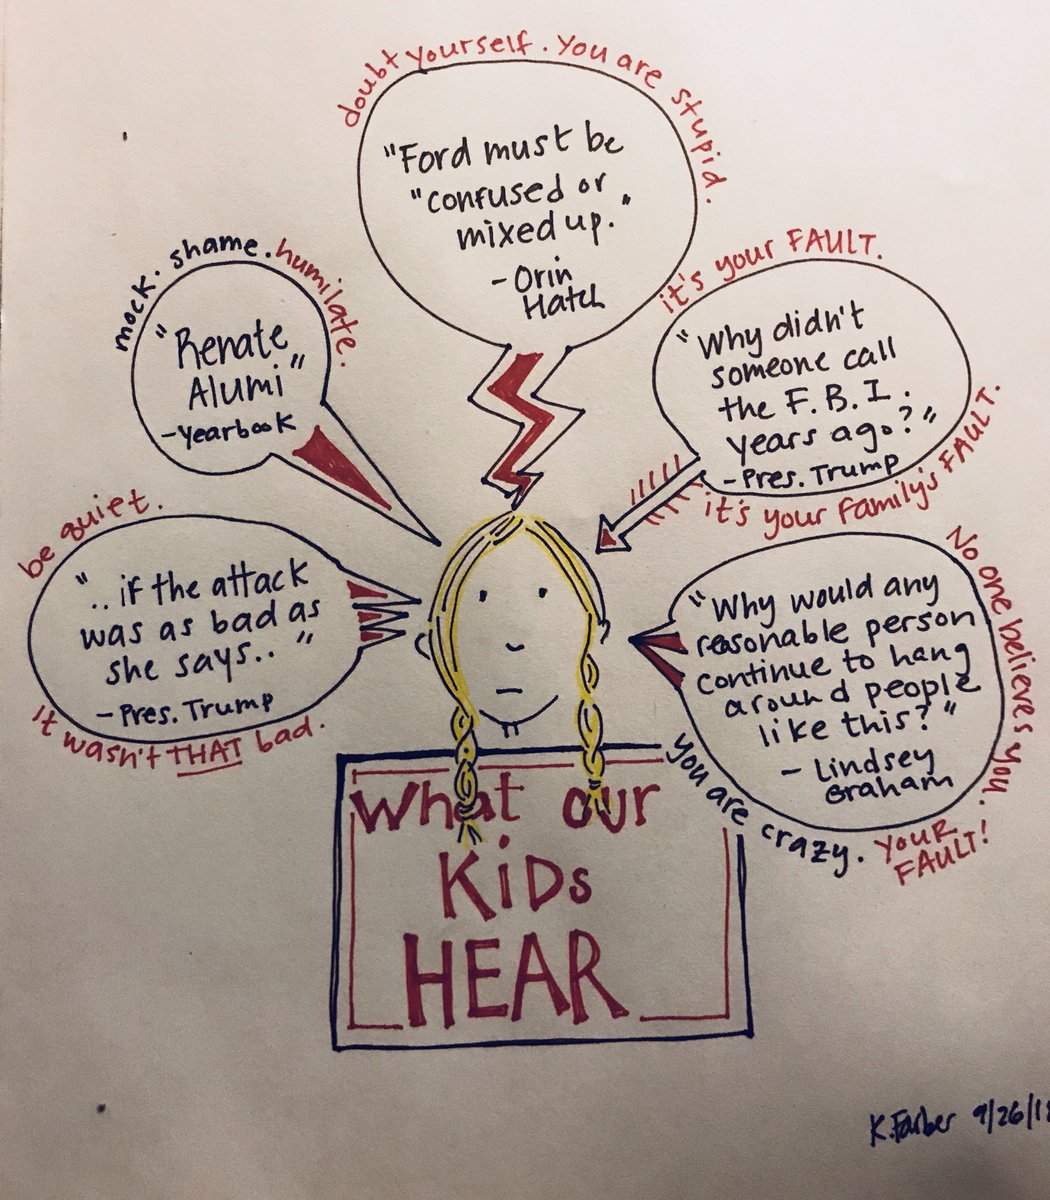 doubt yourself. You are stupid.
"Ford must be
"confused or
mixed up."
- Orin
Hatch
mock. shame. humilate.
"Renate
Alumi"
-yearbook
it's your FAULT.
"Why didn't
someone call
the F.B.I.
years ago?"
- Pres. Trump
it's your family's FAULT.
be quiet.
"..if the attack
was as bad as
she says.."
- Pres. Trump
It wasn't THAT bad.
No one believes you.
"Why would any
reasonable person
continue to hang
around people
like this?"
- Lindsey
Graham
you are crazy. YOUR
FAULT!
What our
KiDs
HEAR
K. Farber 9/26/18